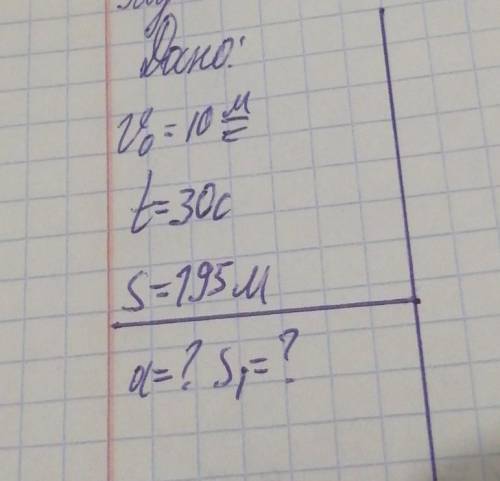 Дано:
V₀ = 10 м/с
t = 30с
S = 195 м
a = ? S₁ = ?